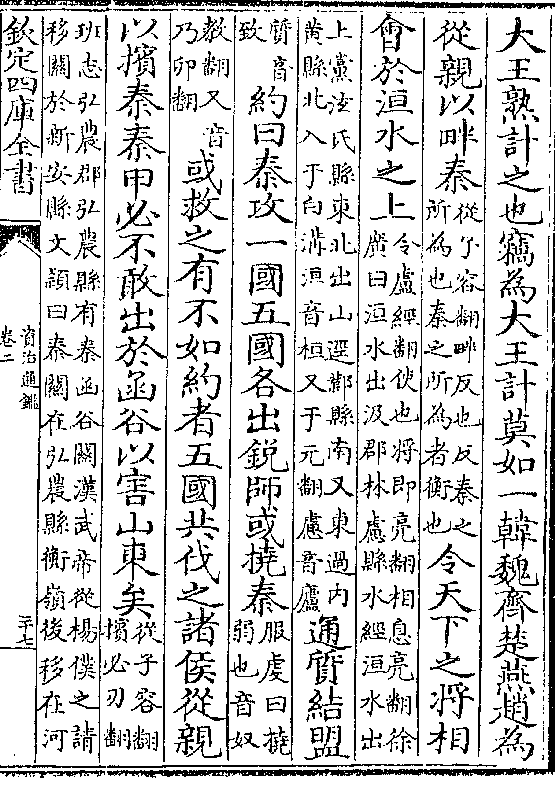 大王熟計之也竊為大王計莫如一韓魏齊楚燕趙為
從親以畔秦
從子容翻畔反也反秦之
所為也秦之所為者衡也
令天下之將相
會於洹水之上
令盧經翻使也將即亮翻相息亮翻徐
廣曰洹水出汲郡林慮縣水經洹水出
上黨泫氏縣東北出山逕鄴縣南又東過内
黄縣北入于白溝洹音桓又于元翻慮音廬
通質結盟
質音
致
約曰秦攻一國五國各出鋭師或撓秦
服虔曰撓
弱也音奴
教翻又音
乃卯翻
或救之有不如約者五國共伐之諸侯從親
以擯秦秦甲必不敢出於函谷以害山東矣
從子容翻
擯必刃翻
班志弘農郡弘農縣有秦函谷關漢武帝從楊僕之請
移關於新安縣文頴曰秦關在弘農縣衡嶺後移在河
欽定四庫全書
資治通鑑
卷二
二十七